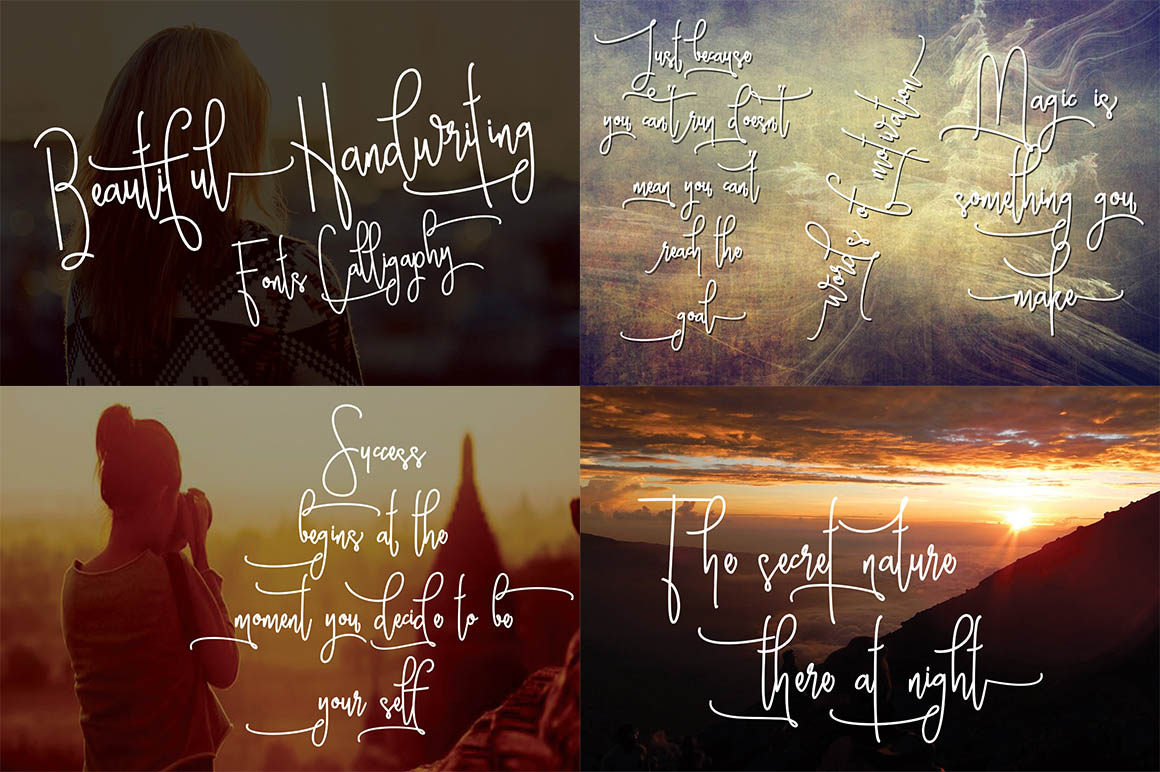 Beautiful Handwriting
Fonts Calligaphy
Just because
you can't run doesn't
mean you can't
reach the
goal
words of motivation
Magic is
something you
make
Success
begins at the
moment you decide to be
your self
The secret nature
there at night